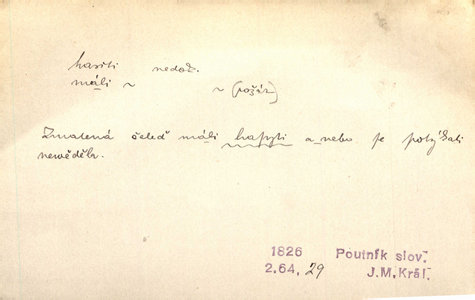 hasiti nedok.
máli ~ ~ (požár)
Zmatená čeleď máli hasyti a nebo se potýkati
newěděla.
1826 Poutník slov.
2.64, 29 J.M.Král.